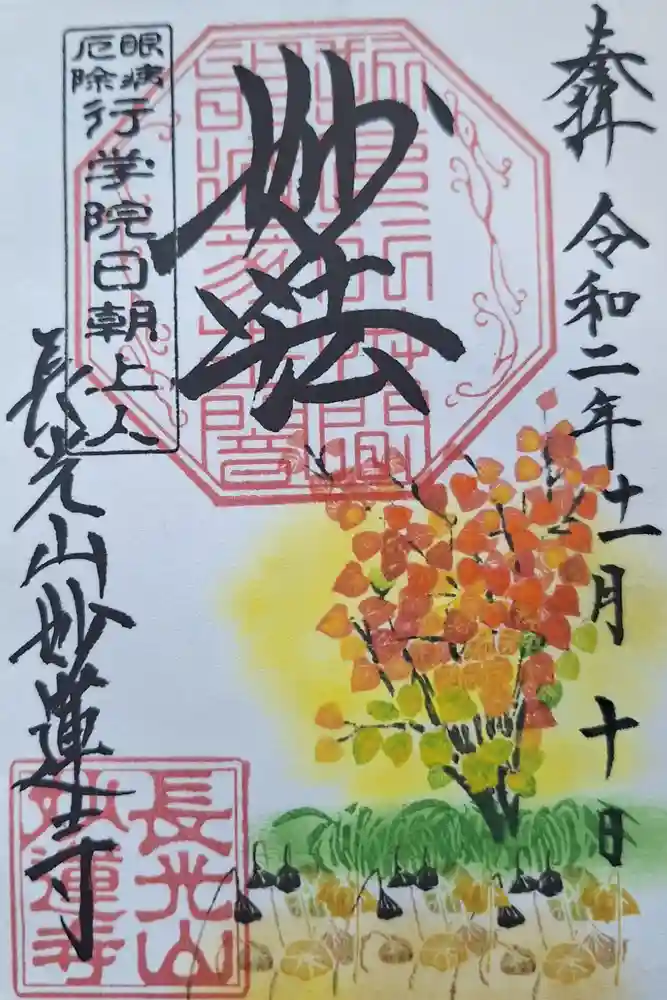 奉拝 令和二年十一月十日
妙法
眼病
厄除
行学院日朝上人
長光山妙蓮寺
長光山
妙蓮寺